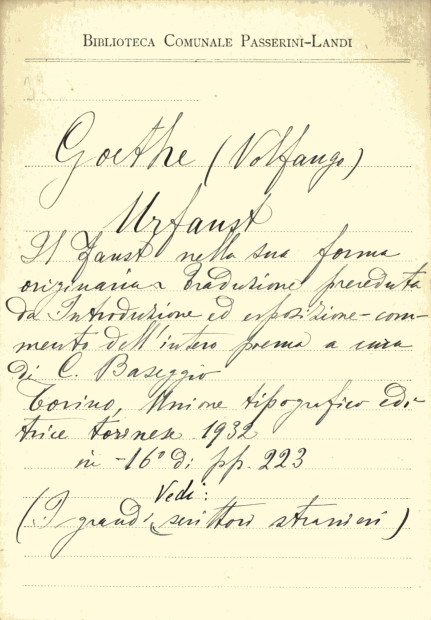 BIBLIOTECA COMUNALE PASSERINI-LANDI
Goethe (Volfango)
Urfaust
Il Faust nella sua forma
originaria - traduzione preceduta
da Introduzione ed esposizione-com-
mento dell'intero poema a cura
di C. Baseggio
Torino, Unione tipografico edi-
trice torinese 1932
in -16° di pp. 223
Vedi:
(I grandi scrittori stranieri)